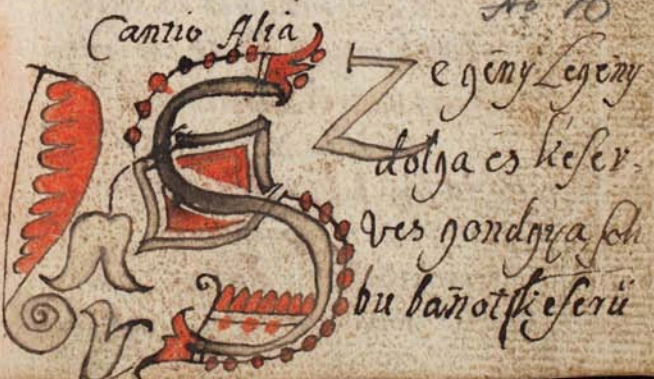 No 10
Cantio Alia
SZegény Legény
dolga és keser-
ves gondgya sok
bu bánot keserü